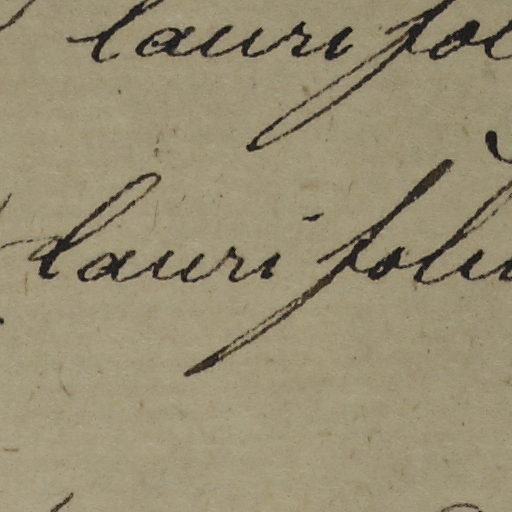 laurifol
laurifoliu